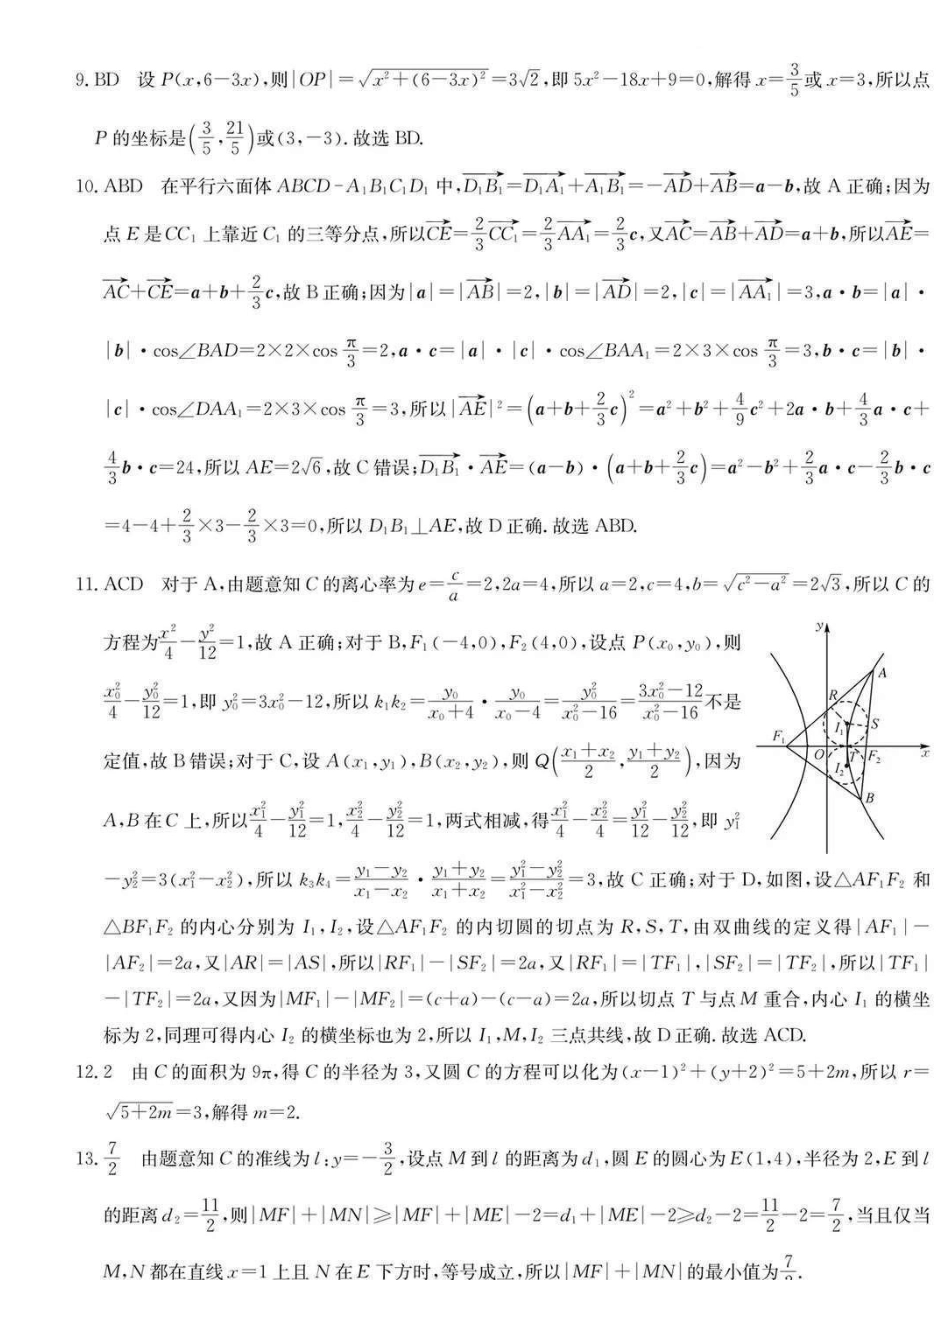 9. BD 设 P(x,6−3x),则|OP|=√(x²+(6−3x)²)=3√2,即 5x²−18x+9=0,解得 x=3/5或 x=3,所以点
P 的坐标是(3/5,21/5)或(3,−3). 故选 BD.
10. ABD 在平行六面体 ABCD-A₁B₁C₁D₁ 中,D₁B₁→=D₁A₁→+A₁B₁→=−AD→+AB→=a−b,故 A 正确;因为
点 E 是CC₁ 上靠近 C₁ 的三等分点,所以CE→=2/3CC₁→=2/3AA₁→=2/3c,又AC→=AB→+AD→=a+b,所以AE→=
AC→+CE→=a+b+2/3c,故 B 正确;因为|a|=|AB→|=2,|b|=|AD→|=2,|c|=|AA₁→|=3,a·b=|a|·
|b|·cos∠BAD=2×2×cos π/3=2,a·c=|a|·|c|·cos∠BAA₁=2×3×cos π/3=3,b·c=|b|·
|c|·cos∠DAA₁=2×3×cos π/3=3,所以|AE→|²=(a+b+2/3c)²=a²+b²+4/9c²+2a·b+4/3a·c+
4/3b·c=24,所以 AE=2√6,故 C 错误;D₁B₁→·AE→=(a−b)·(a+b+2/3c)=a²−b²+2/3a·c−2/3b·c
=4−4+2/3×3−2/3×3=0,所以 D₁B₁⊥AE,故 D 正确. 故选 ABD.
11. ACD 对于 A,由题意知 C 的离心率为 e=c/a=2,2a=4,所以 a=2,c=4,b=√(c²−a²)=2√3,所以 C 的
方程为x²/4−y²/12=1,故 A 正确;对于 B,F₁(−4,0),F₂(4,0),设点 P(x₀,y₀),则
x₀²/4−y₀²/12=1,即 y₀²=3x₀²−12,所以 k₁k₂=y₀/(x₀+4)·y₀/(x₀−4)=y₀²/(x₀²−16)=(3x₀²−12)/(x₀²−16)不是
定值,故 B 错误;对于 C,设 A(x₁,y₁),B(x₂,y₂),则 Q((x₁+x₂)/2,(y₁+y₂)/2),因为
A,B 在C 上,所以x₁²/4−y₁²/12=1,x₂²/4−y₂²/12=1,两式相减,得x₁²/4−x₂²/4=y₁²/12−y₂²/12,即 y₁²
−y₂²=3(x₁²−x₂²),所以 k₃k₄=(y₁−y₂)/(x₁−x₂)·(y₁+y₂)/(x₁+x₂)=(y₁²−y₂²)/(x₁²−x₂²)=3,故 C 正确;对于 D,如图,设△AF₁F₂ 和
△BF₁F₂ 的内心分别为 I₁,I₂,设△AF₁F₂ 的内切圆的切点为 R,S,T,由双曲线的定义得|AF₁|−
|AF₂|=2a,又|AR|=|AS|,所以|RF₁|−|SF₂|=2a,又|RF₁|=|TF₁|,|SF₂|=|TF₂|,所以|TF₁|
−|TF₂|=2a,又因为|MF₁|−|MF₂|=(c+a)−(c−a)=2a,所以切点 T 与点 M 重合,内心 I₁ 的横坐
标为 2,同理可得内心 I₂ 的横坐标也为 2,所以 I₁,M,I₂ 三点共线,故 D 正确. 故选 ACD.
y
A
R
I₁
S
F₁
O
T
F₂
x
I₂
B
12. 2 由 C 的面积为 9π,得 C 的半径为 3,又圆 C 的方程可以化为(x−1)²+(y+2)²=5+2m,所以 r=
√(5+2m)=3,解得 m=2.
13. 7/2 由题意知 C 的准线为 l:y=−3/2,设点 M 到 l 的距离为 d₁,圆 E 的圆心为 E(1,4),半径为 2,E 到 l
的距离 d₂=11/2,则|MF|+|MN|≥|MF|+|ME|−2=d₁+|ME|−2≥d₂−2=11/2−2=7/2,当且仅当
M,N 都在直线 x=1 上且 N 在 E 下方时,等号成立,所以|MF|+|MN|的最小值为7/2.